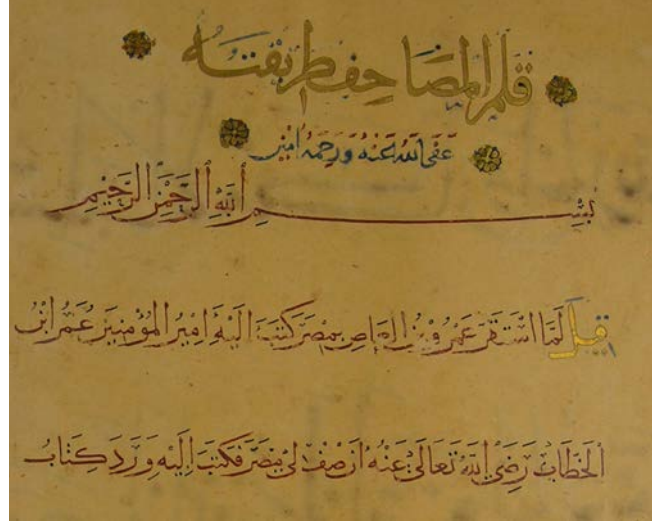 قلم المصاحف طريقته
عفى الله عنه ورحمه امين
بسم الله الرحمن الرحيم
قيل لما استقر عمرو بن العاص بمصر كتب اليه امير المؤمنين عمر ابن
الخطاب رضي الله تعالى عنه ان صف لي مصر فكتب إليه ورد كتاب